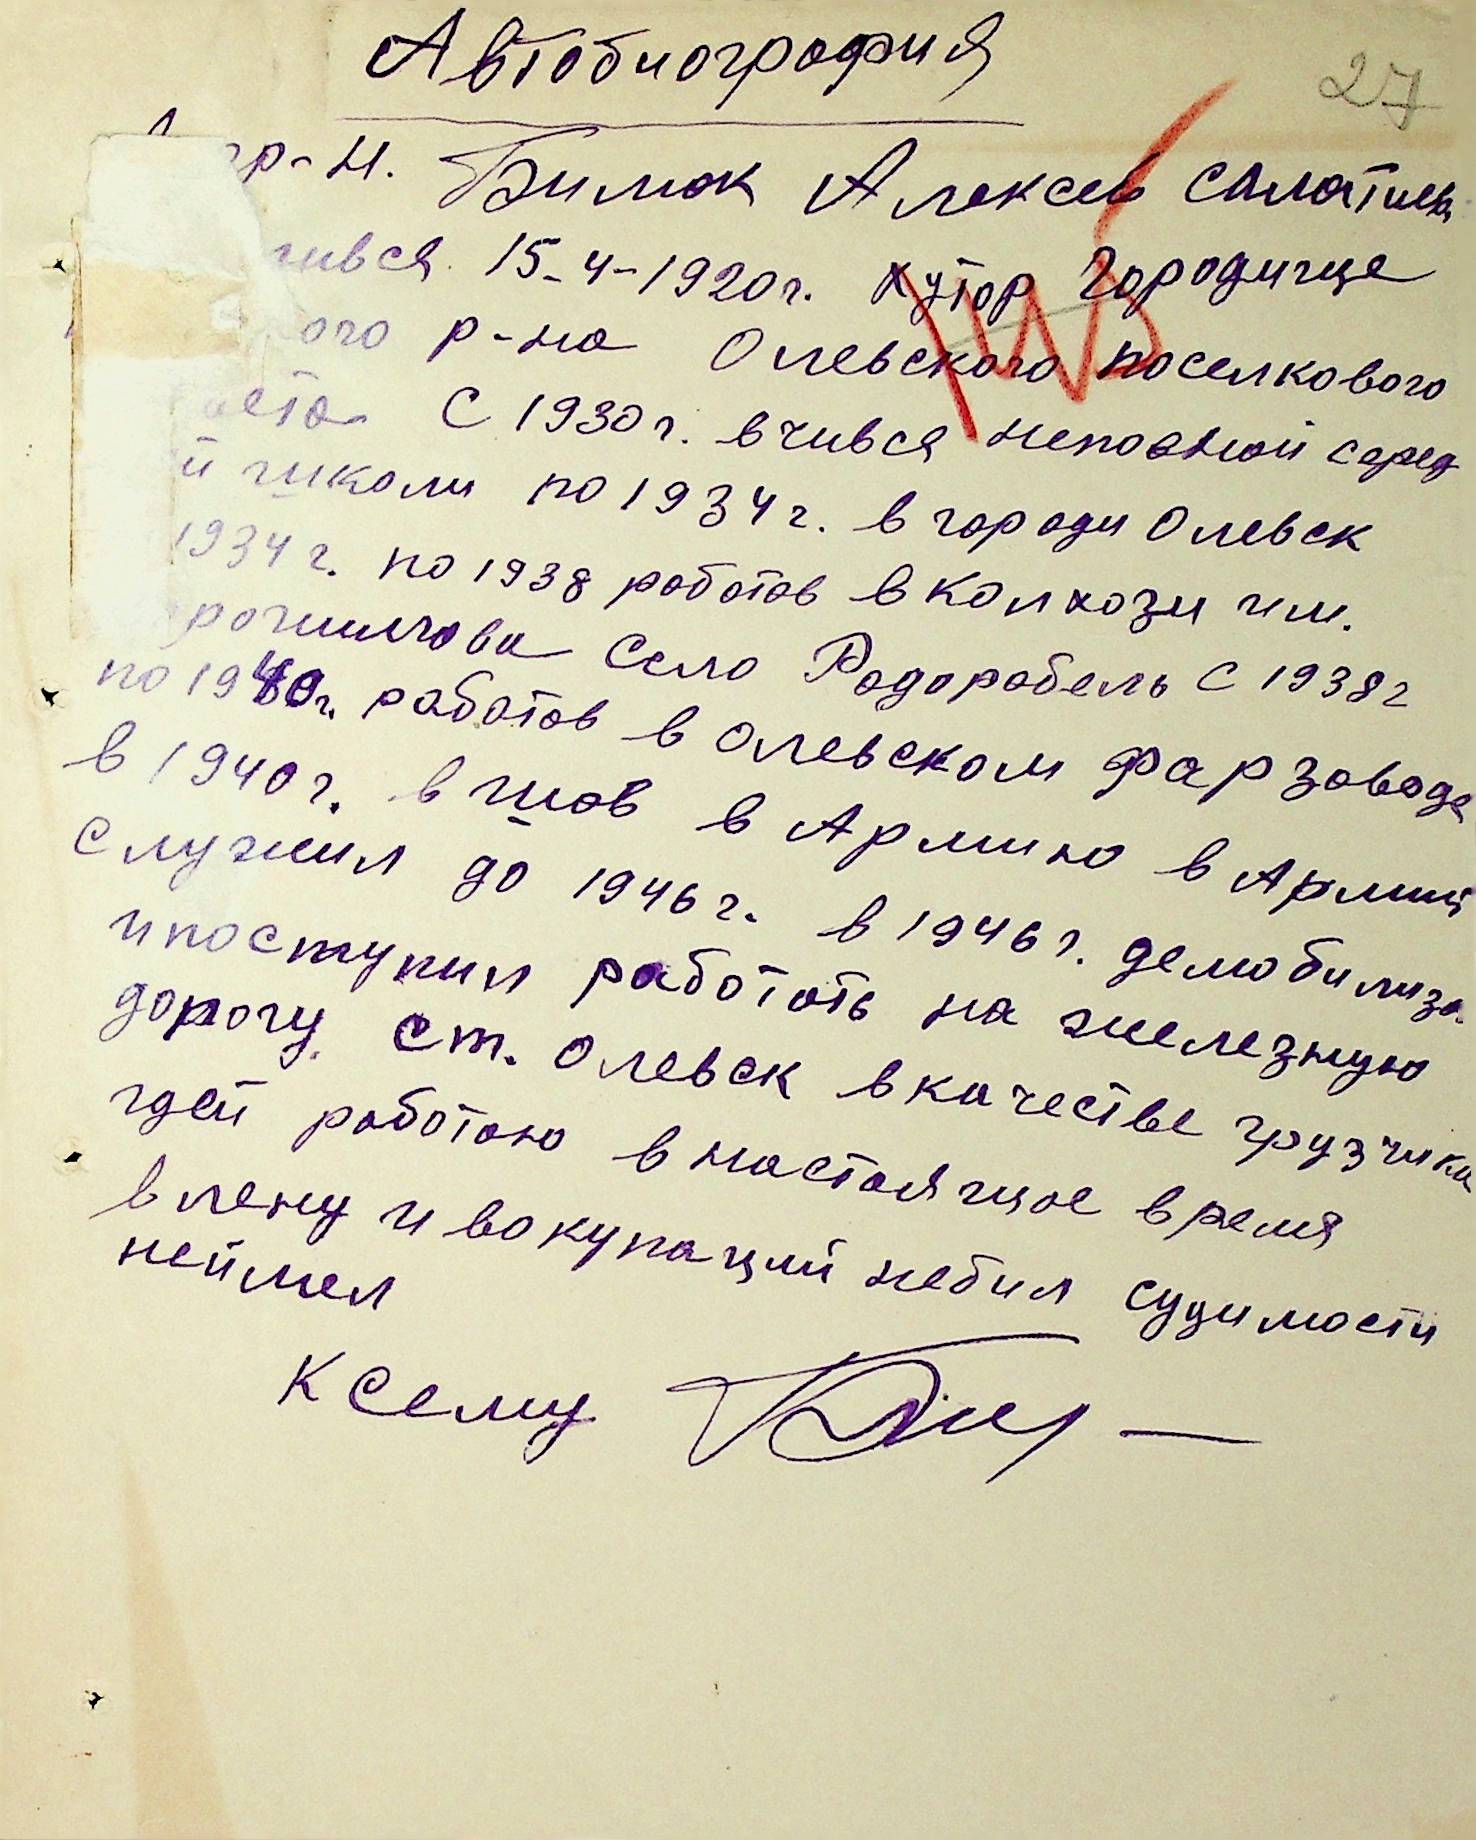 Автобиография
27
гр-н. Бимок Алексей
ився 15-4-1920г. хутор Городище
ого р-на Олевского поселкового
ета С 1930г. вчився неповной серед
й школи по 1934г. в городи Олевск
1934г. по 1938 работав в колхози им.
рошилова Село Радоробель С 1938г
по 1940г. работав в олевском фарзаводе
в 1940г. вшов в Армию в Армии
служил до 1946г. в 1946г. демобилизо
и поступил работать на железную
дорогу. ст. олевск в качестве грузчика
гдей работаю в настоящое время
в плену и вокупации небил судимости
неимел
К сему